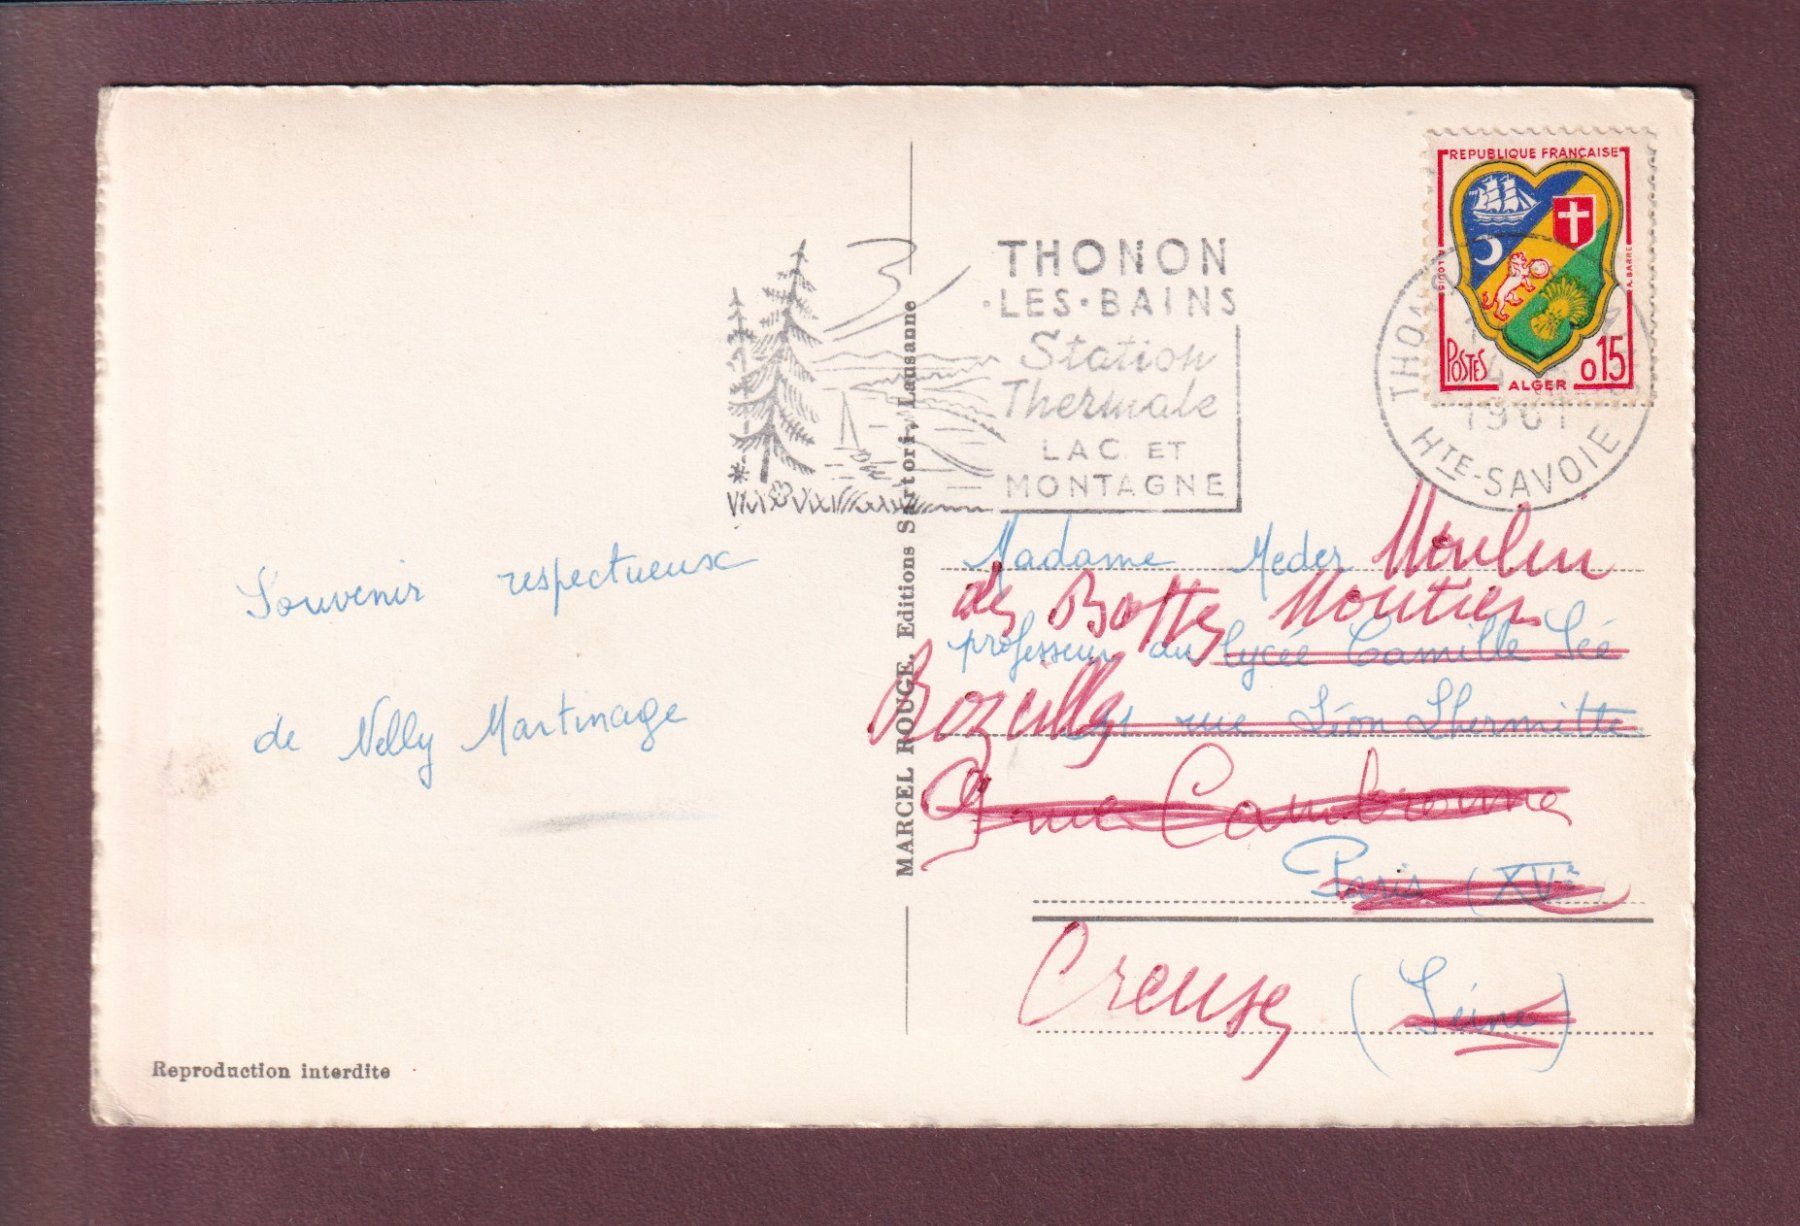 REPUBLIQUE FRANÇAISE
POSTES
ALGER
0,15
A. BARRE
THONON
·LES·BAINS
Station
Thermale
LAC ET
MONTAGNE
1961
HTE-SAVOIE
MARCEL ROUGE, Editions Sartori, Lausanne
Souvenir respectueux
de Nelly Martinage
Madame Meder Moulin
des Bottes Moutier
professeur au lycée Camille Sée
rue Léon Lhermitte
rue Cambronne
Paris (XVe)
Creuse (Seine)
Reproduction interdite